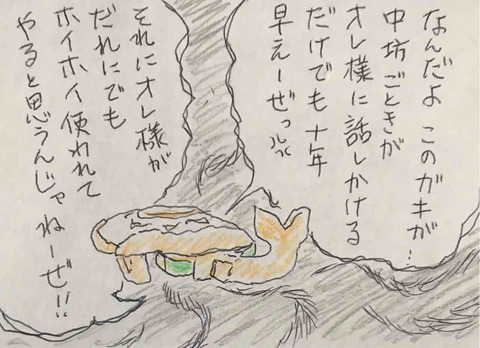 なんだよ このガキが‥
中坊ごときが
オレ様に話しかける
だけでも十年
早えーぜっ
それにオレ様が
だれにでも
ホイホイ使われて
やると思うんじゃねーぜ!!